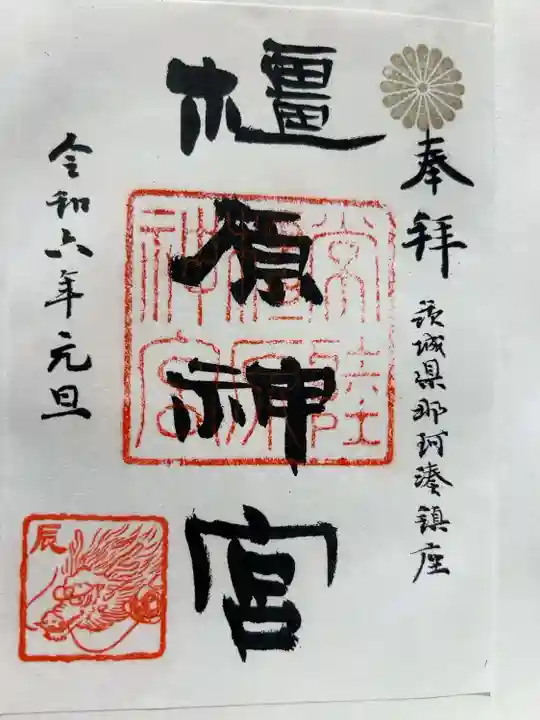 奉拝
茨城県那珂湊鎮座
橿原神宮
常陸
橿原
神宮
令和六年元旦
辰